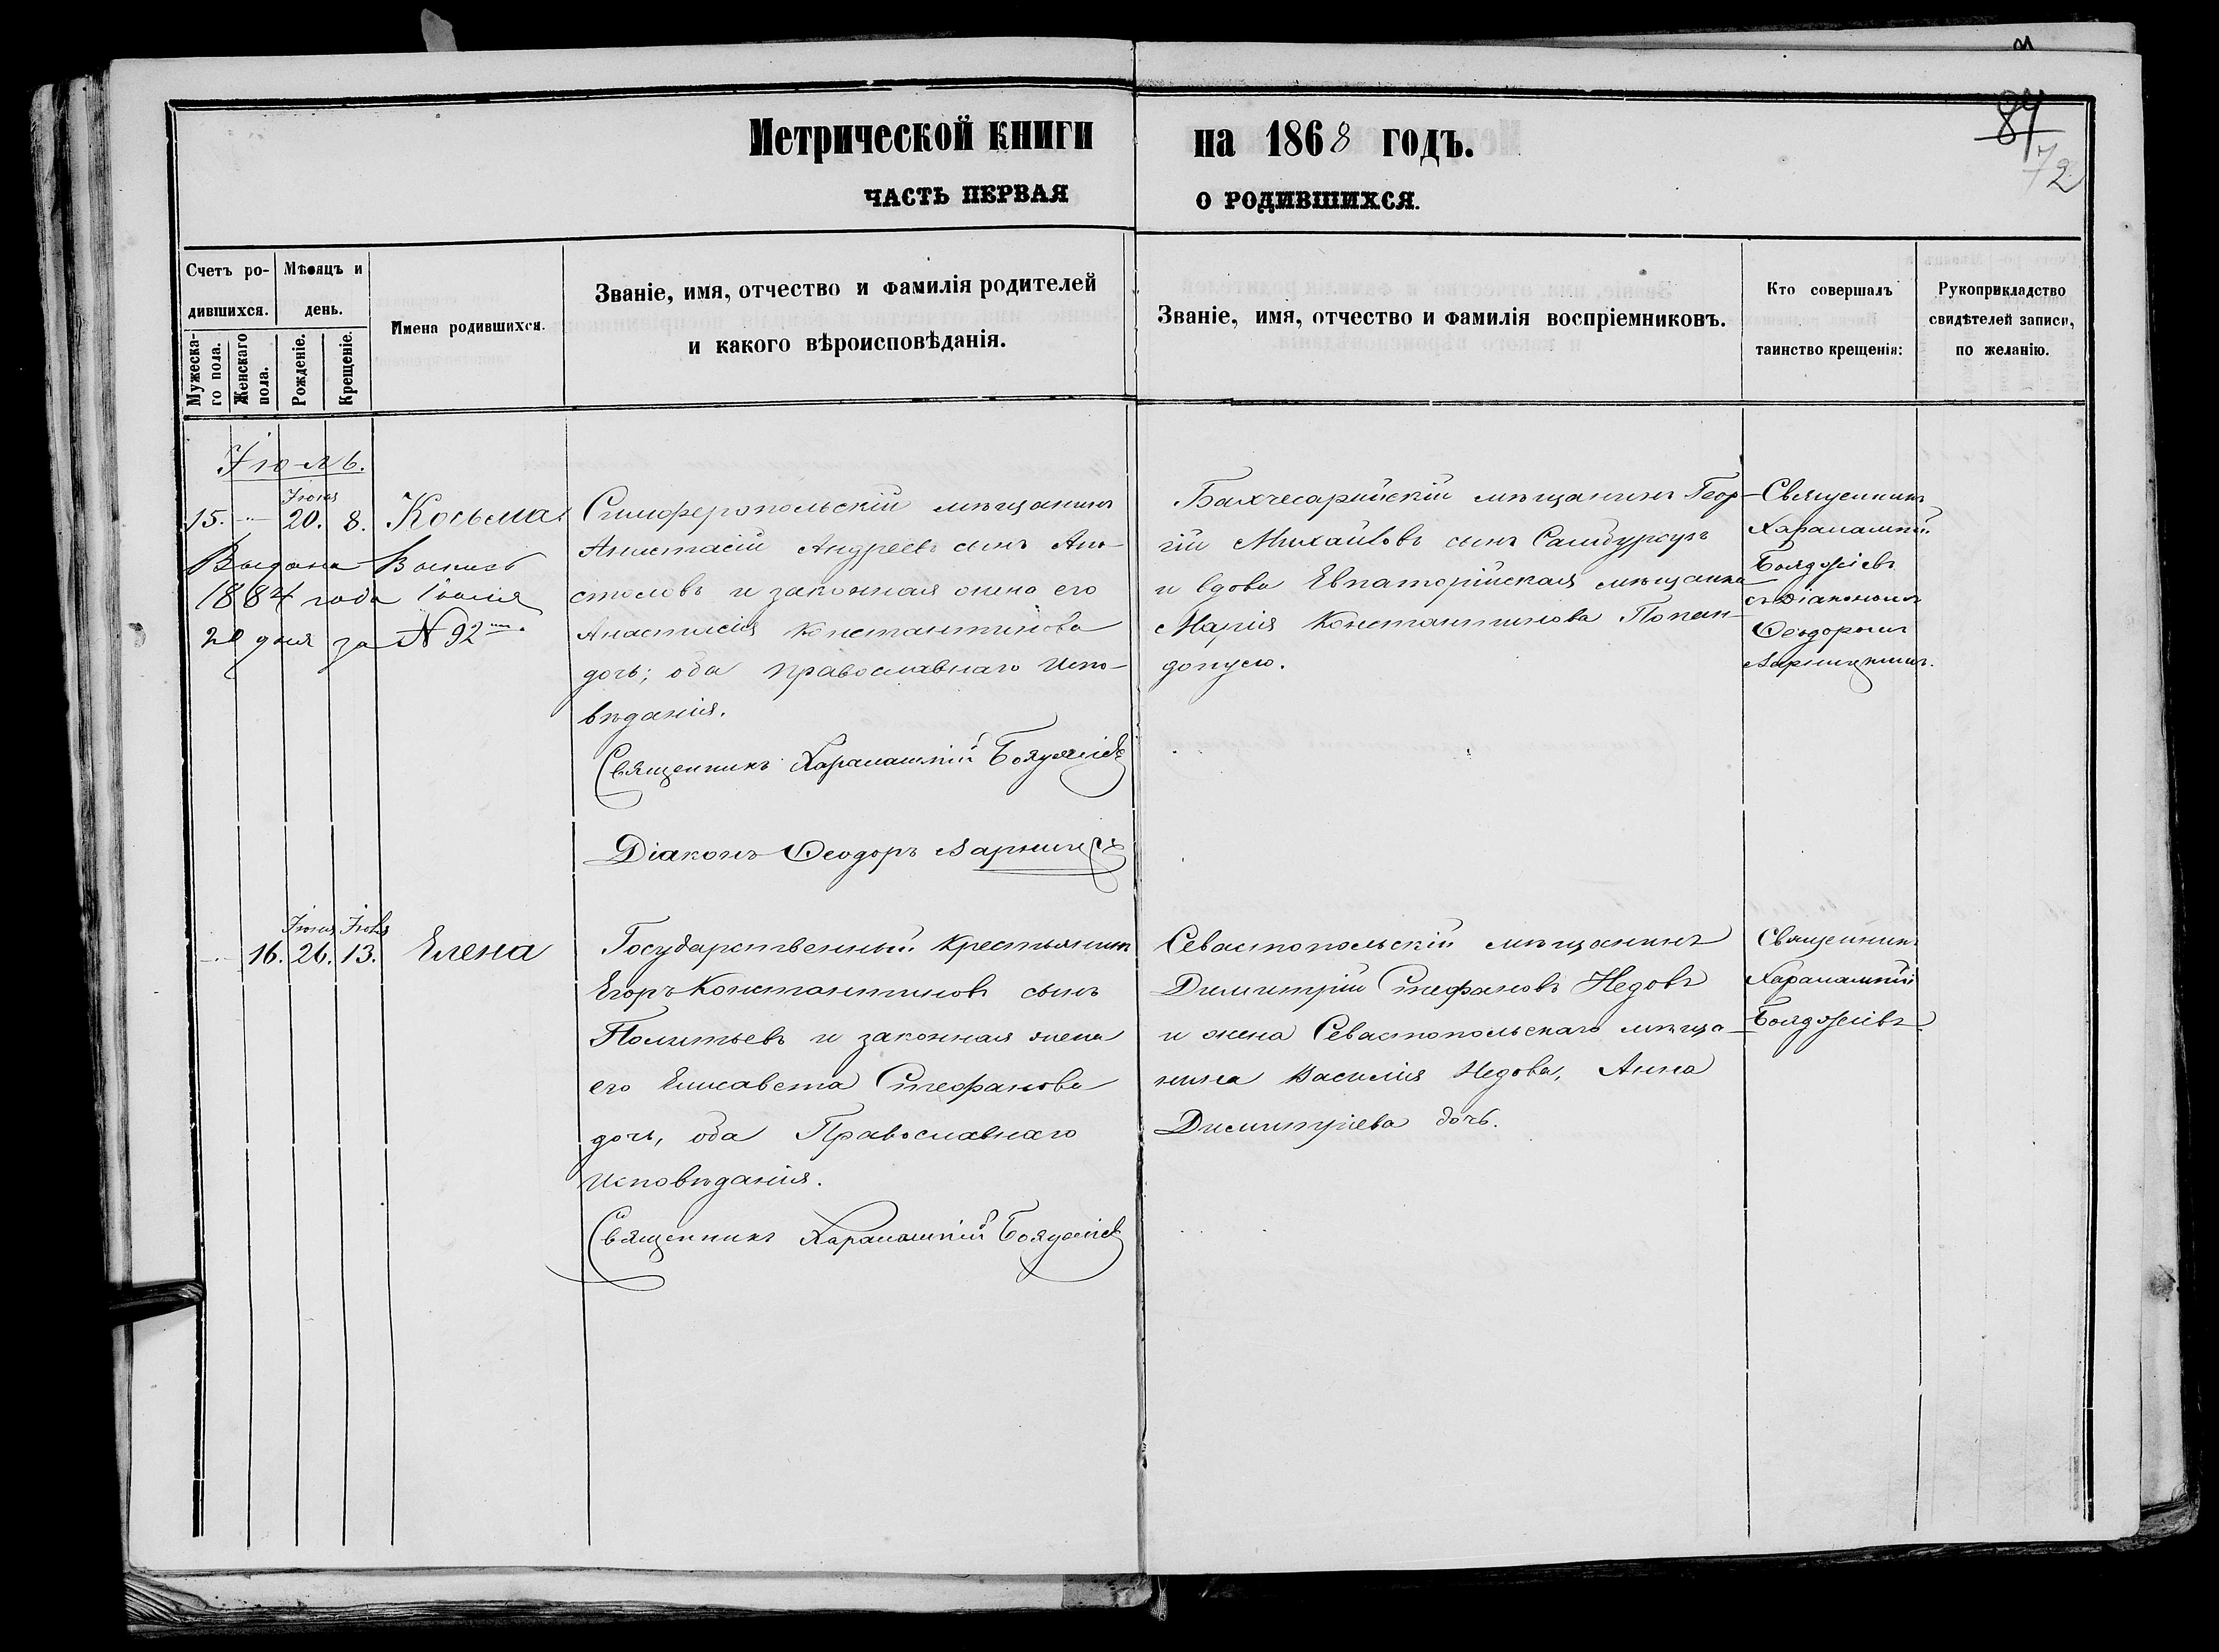 Метрической книги на 1868 годъ.
ЧАСТЬ ПЕРВАЯ О РОДИВШИХСЯ.
87
72
Счетъ ро-
дившихся.
Мужеска-
го пола.
Женскаго
пола.
Мѣсяцъ и
день.
Рожденіе.
Крещеніе.
Имена родившихся.
Званіе, имя, отчество и фамилія родителей
и какого вѣроисповѣданія.
Званіе, имя, отчество и фамилія воспріемниковъ.
Кто совершалъ
таинство крещенія:
Рукоприкладство
свидѣтелей записи,
по желанію.
Іюль.
Іюня
15. 20. 8. Косьма
Выдана Выпись
1884 года Іюля
20 дня за № 92
Симферопольскій мѣщанинъ
Анастасій Андреевъ сынъ Апо-
столовъ и законная жена его
Анастасія Константинова
дочь; оба православнаго испо-
вѣданія.
Священникъ Харалампій Бояджіевъ
Діаконъ Ѳеодоръ
Бахчесарайскій мѣщанинъ Геор-
гій Михайловъ сынъ
и вдова Евпаторійская мѣщанка
Марія Константинова Попан-
допуло.
Священникъ
Харалампій
Бояджіевъ
съ Діакономъ
Ѳеодоромъ
Іюня Іюля
16. 26. 13. Елена
Государственный крестьянинъ
Егоръ Константиновъ сынъ
Политьевъ и законная жена
его Елисавета Стефанова
дочь, оба Православнаго
исповѣданія.
Священникъ Харалампій Бояджіевъ
Севастопольскій мѣщанинъ
Димитрій Стефановъ Недовъ
и жена Севастопольскаго мѣща-
нина Василія Недова, Анна
Димитріева дочь.
Священникъ
Харалампій
Бояджіевъ